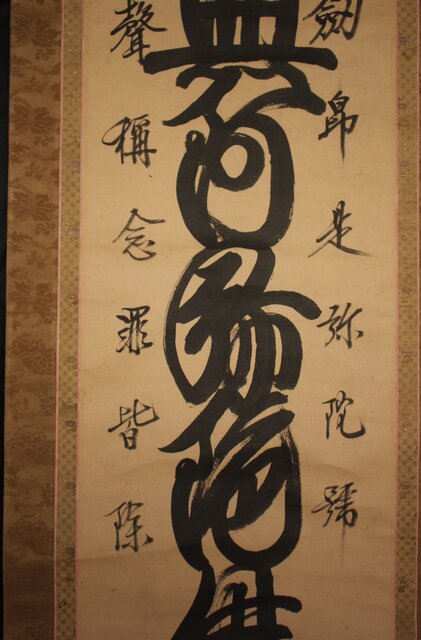 劍即是弥陀號
無阿弥陀佛
聲稱念罪皆除